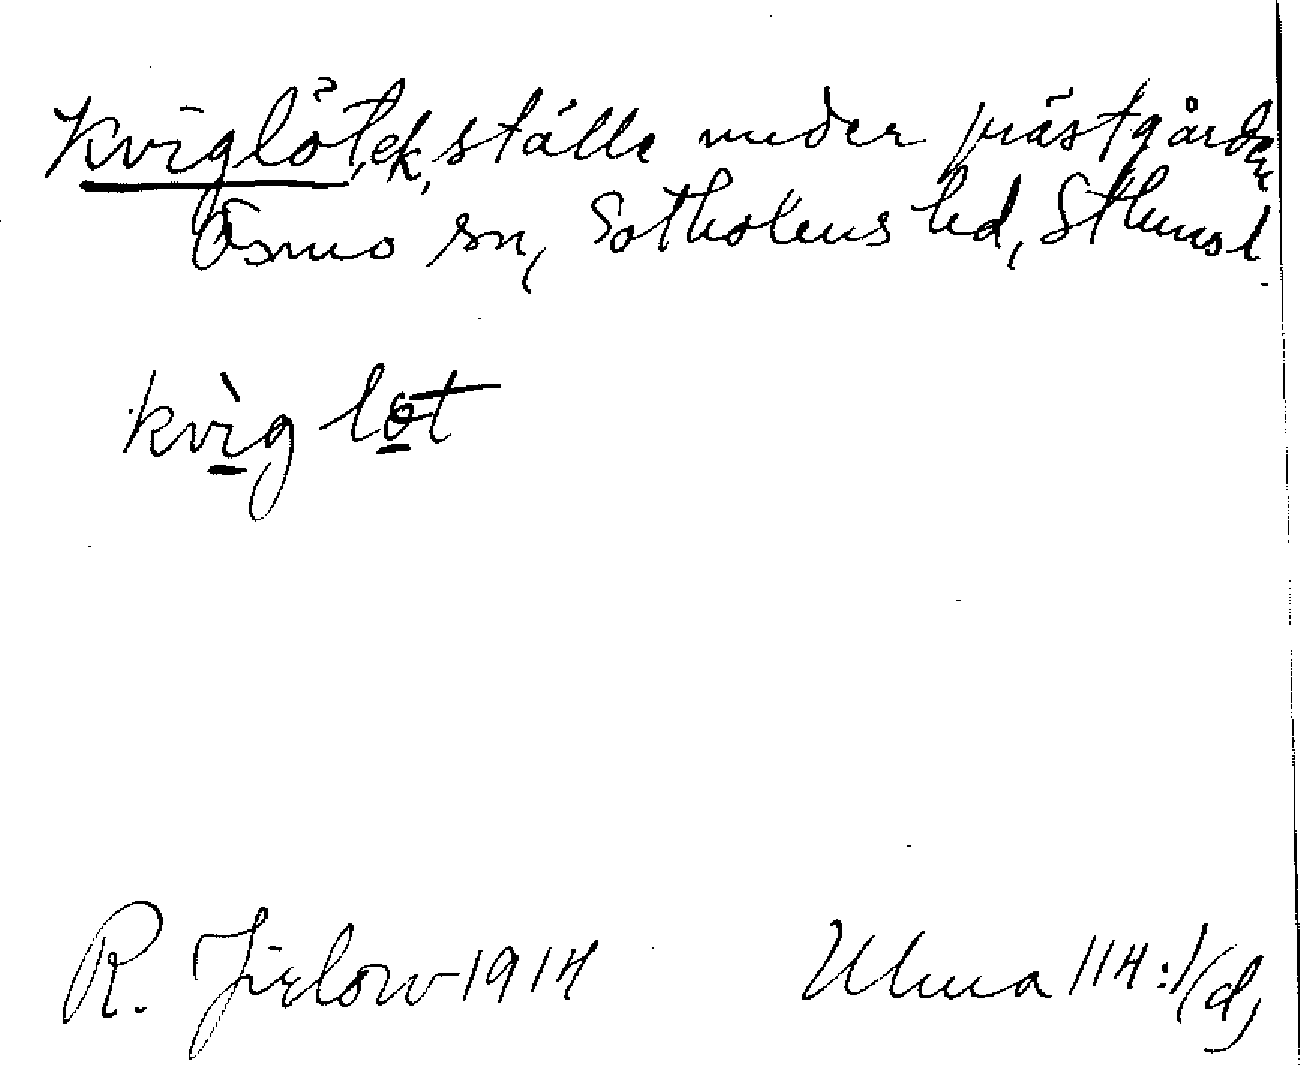 Kviglöt, ek, ställe under prästgården
Ösmo sn, Sotholms hd, Sthms l
kvìg löt
R. Jirlow 1914 Ulma 114:1(d)